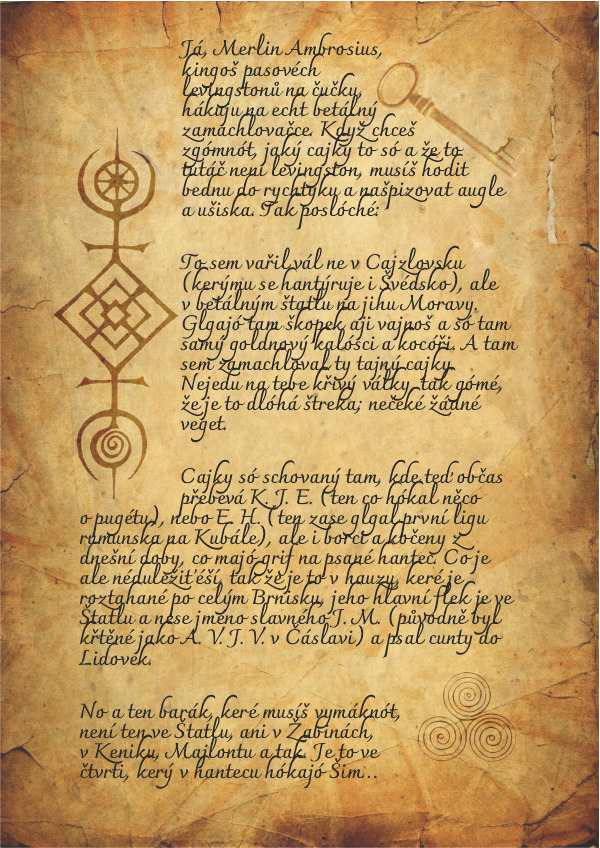 Já, Merlin Ambrosius,
kingoš pasovéch
levingstonů na čučky,
hákuju na echt betálný
zamachlovačce. Když chceš
zgómnót, jaký cajky to só a že to
tutáč není levingston, musíš hodit
bednu do rychtyku a našpizovat augle
a ušiska. Tak poslóché:
To sem vařil vál ne v Cajzlovsku
(kerýmu se hantýruje i Švédsko), ale
v betálným štatlu na jihu Moravy.
Glgajó tam škopek aji vajnoš a só tam
samý goldnový kalósci a kocóři. A tam
sem zamachloval ty tajný cajky.
Nejedu na tebe křivý vátky, tak gómé,
že je to dlóhá štreka; nečeké žádné
veget.
Cajky só schovaný tam, kde teď občas
přebévá K. J. E. (ten co hókal něco
o pugétu), nebo E. H. (ten zase glgal první ligu
rumunska na Kubále), ale i borci a kočeny z
dnešní doby, co majó grif na psané hantec. Co je
ale nédůležiťéší, tak že je to v hauzu, keré je
roztahané po celým Brnisku, jeho hlavní flek je ve
Štatlu a nese jméno slavného J. M. (původně byl
křtěné jako A. V. J. V. v Čáslavi) a psal cunty do
Lidovek.
No a ten barák, keré musíš vymáknót,
není ten ve Štatlu, ani v Žabinách,
v Keniku, Majlontu a tak. Je to ve
čtvrti, kerý v hantecu hókajó Šim...